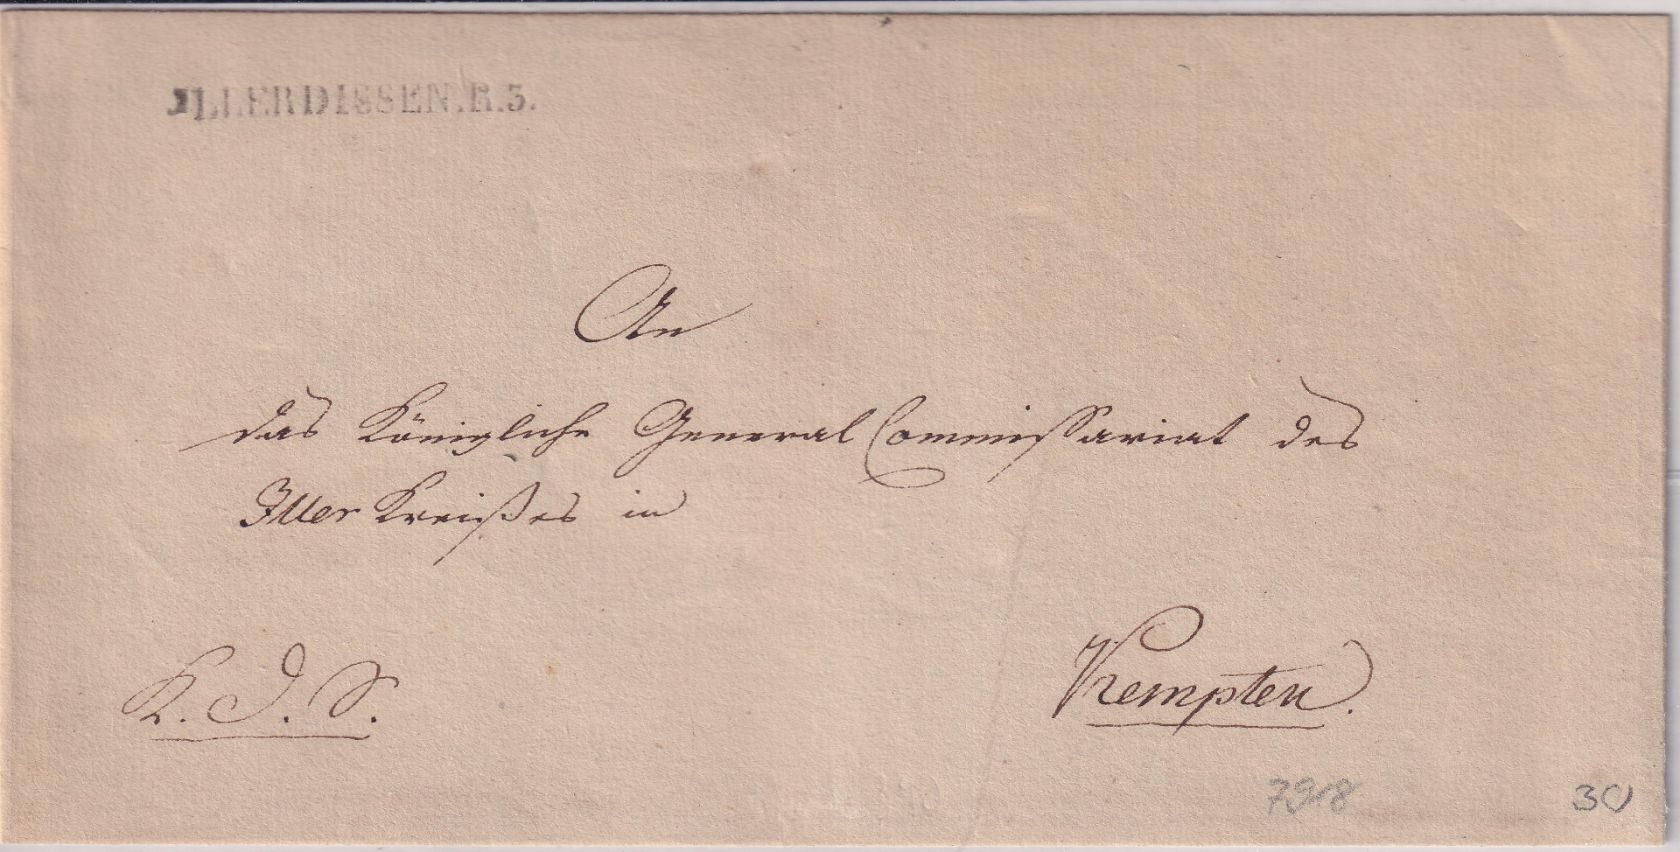 ILLERDISSEN.R.3.
An
das Königliche General Commissariat des
Iller Kreißes in
K. D. S.
Kempten.
30